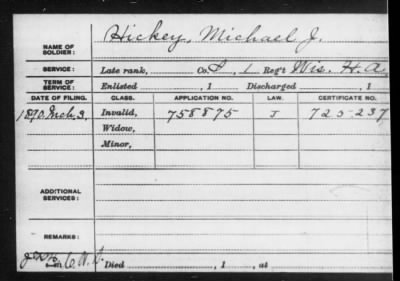 Hickey, Michael J.
NAME OF SOLDIER:
SERVICE: Late rank, Co. 1 Reg't Wis. H. A.
TERM OF SERVICE: Enlisted , 1 Discharged , 1
DATE OF FILING. CLASS. APPLICATION NO. LAW. CERTIFICATE NO.
Invalid, 758875 J 725237
Widow,
Minor,
ADDITIONAL SERVICES:
REMARKS:
Died , 1 , at